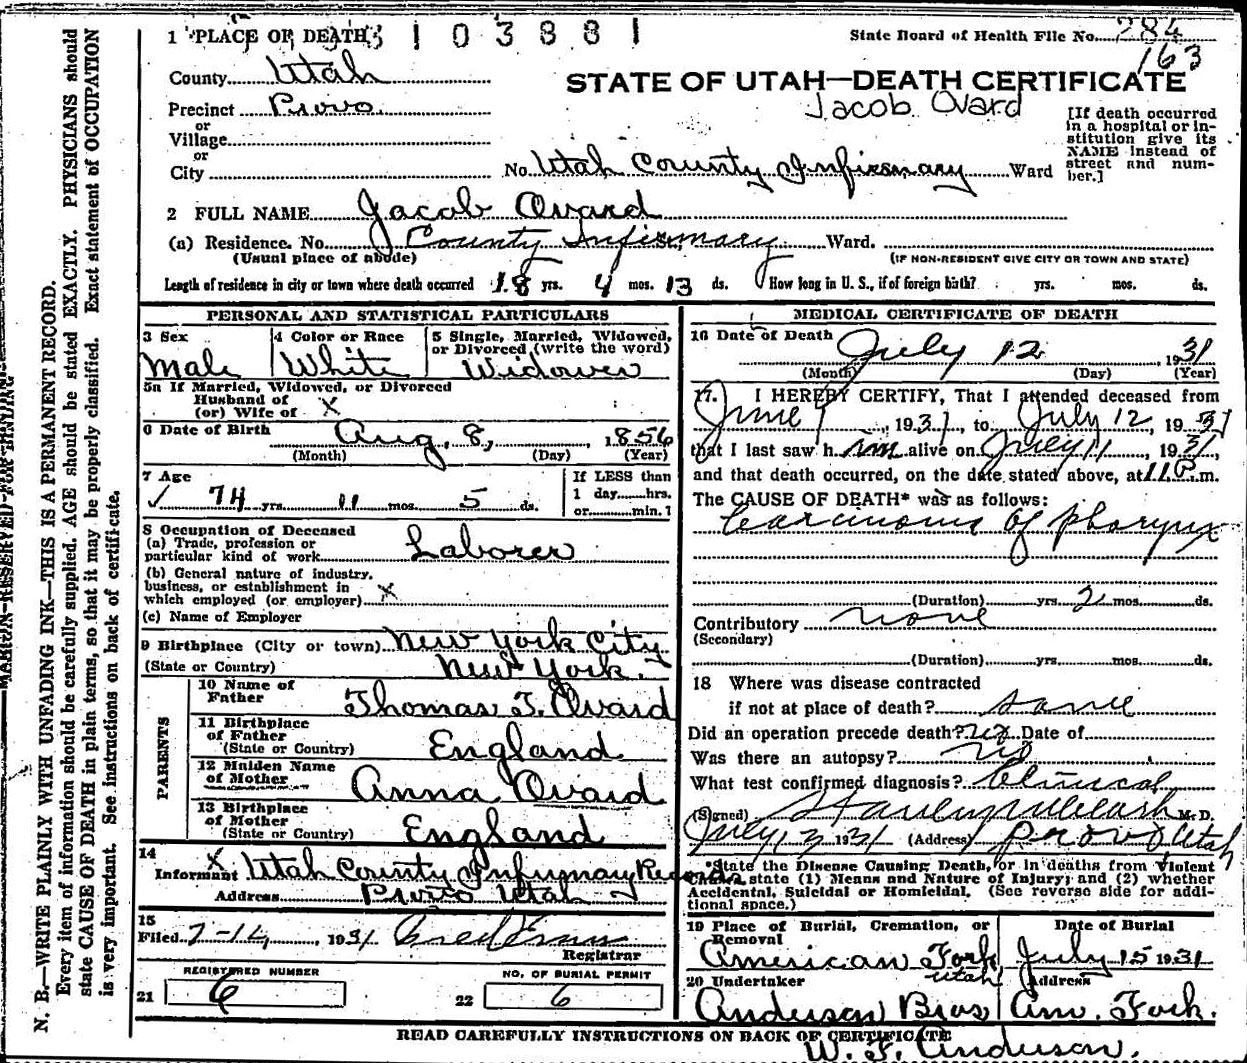 1 PLACE OF DEATH 3 1 0 3 8 8 1
State Board of Health File No. 284
163
County Utah
STATE OF UTAH—DEATH CERTIFICATE
Precinct Provo
Jacob Ovard
or
Village
or
City
No. Utah County Infirmary Ward
[If death occurred
in a hospital or in-
stitution give its
NAME instead of
street and num-
ber.]
2 FULL NAME Jacob Ovard
(a) Residence. No. County Infirmary Ward.
(Usual place of abode)
(IF NON-RESIDENT GIVE CITY OR TOWN AND STATE)
Length of residence in city or town where death occurred 18 yrs. 4 mos. 13 ds. How long in U. S., if of foreign birth? yrs. mos. ds.
PERSONAL AND STATISTICAL PARTICULARS
3 Sex
Male
4 Color or Race
White
5 Single, Married, Widowed,
or Divorced (write the word)
Widower
5a If Married, Widowed, or Divorced
Husband of
(or) Wife of X
6 Date of Birth Aug. 8, 1856
(Month) (Day) (Year)
7 Age
74 yrs. 11 mos. 5 ds.
If LESS than
1 day hrs.
or min.?
8 Occupation of Deceased
(a) Trade, profession or
particular kind of work Laborer
(b) General nature of industry,
business, or establishment in
which employed (or employer) X
(c) Name of Employer
9 Birthplace (City or town) New York City
(State or Country) New York.
PARENTS
10 Name of
Father Thomas T. Ovard
11 Birthplace
of Father
(State or Country) England
12 Maiden Name
of Mother Anna Ovard
13 Birthplace
of Mother
(State or Country) England
14 X
Informant Utah County Infirmary Records
Address Provo Utah
15
Filed 7-14, 1931
Registrar
REGISTERED NUMBER
21 6
NO. OF BURIAL PERMIT
22 6
MEDICAL CERTIFICATE OF DEATH
16 Date of Death July 12 1931
(Month) (Day) (Year)
17. I HEREBY CERTIFY, That I attended deceased from
June 1, 1931, to July 12, 1931
that I last saw him alive on July 11, 1931,
and that death occurred, on the date stated above, at 11 P. m.
The CAUSE OF DEATH* was as follows:
Carcinoma of pharynx
(Duration) yrs. 2 mos. ds.
Contributory none
(Secondary)
(Duration) yrs. mos. ds.
18 Where was disease contracted
if not at place of death? same
Did an operation precede death? no Date of
Was there an autopsy? no
What test confirmed diagnosis? Clinical
(Signed) M. D.
July 13 1931 (Address) Provo Utah
*State the Disease Causing Death, or in deaths from Violent
Causes, state (1) Means and Nature of Injury; and (2) whether
Accidental, Suicidal or Homicidal. (See reverse side for addi-
tional space.)
19 Place of Burial, Cremation, or
Removal
American Fork
Utah
Date of Burial
July 15 1931
20 Undertaker
Anderson Bros
Address
Am. Fork.
READ CAREFULLY INSTRUCTIONS ON BACK OF CERTIFICATE
W. F. Anderson.
MARGIN RESERVED FOR BINDING
N. B.—WRITE PLAINLY WITH UNFADING INK—THIS IS A PERMANENT RECORD.
Every item of information should be carefully supplied. AGE should be stated EXACTLY. PHYSICIANS should
state CAUSE OF DEATH in plain terms, so that it may be properly classified. Exact statement of OCCUPATION
is very important. See instructions on back of certificate.